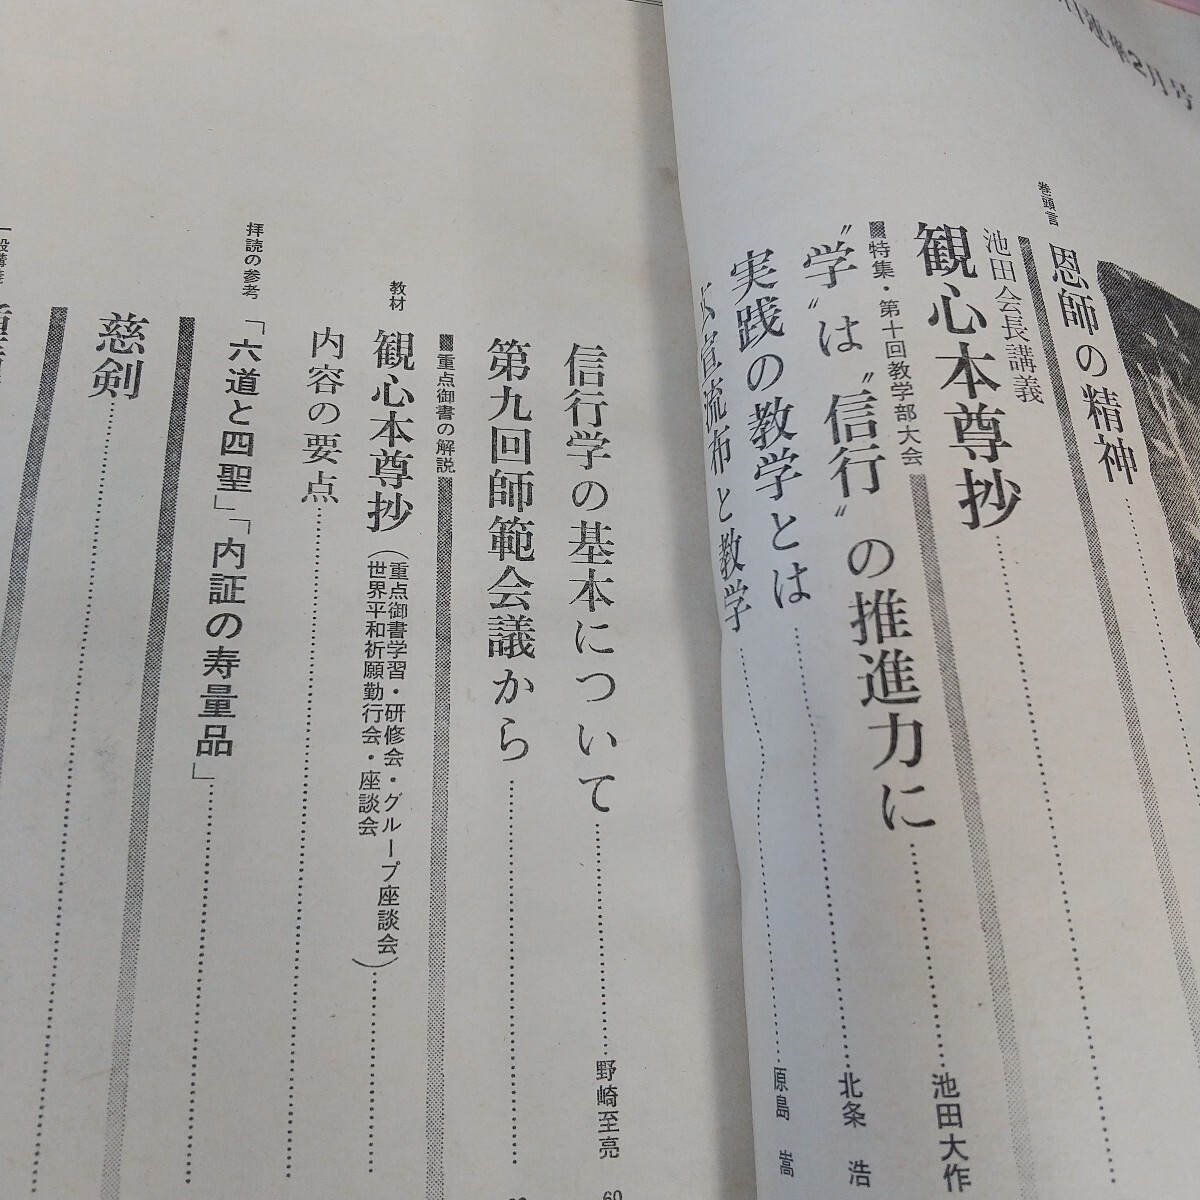 2月号
巻頭言 恩師の精神
池田会長講義
観心本尊抄
■特集・第十回教学部大会
“学”は“信行”の推進力に 池田大作
実践の教学とは 北条 浩
広宣流布と教学 原島 嵩
信行学の基本について 野崎至亮 60
第九回師範会議から
■重点御書の解説
教材 観心本尊抄(重点御書学習・研修会・グループ座談会
世界平和祈願勤行会・座談会)
内容の要点
拝読の参考 「六道と四聖」「内証の寿量品」
慈剣